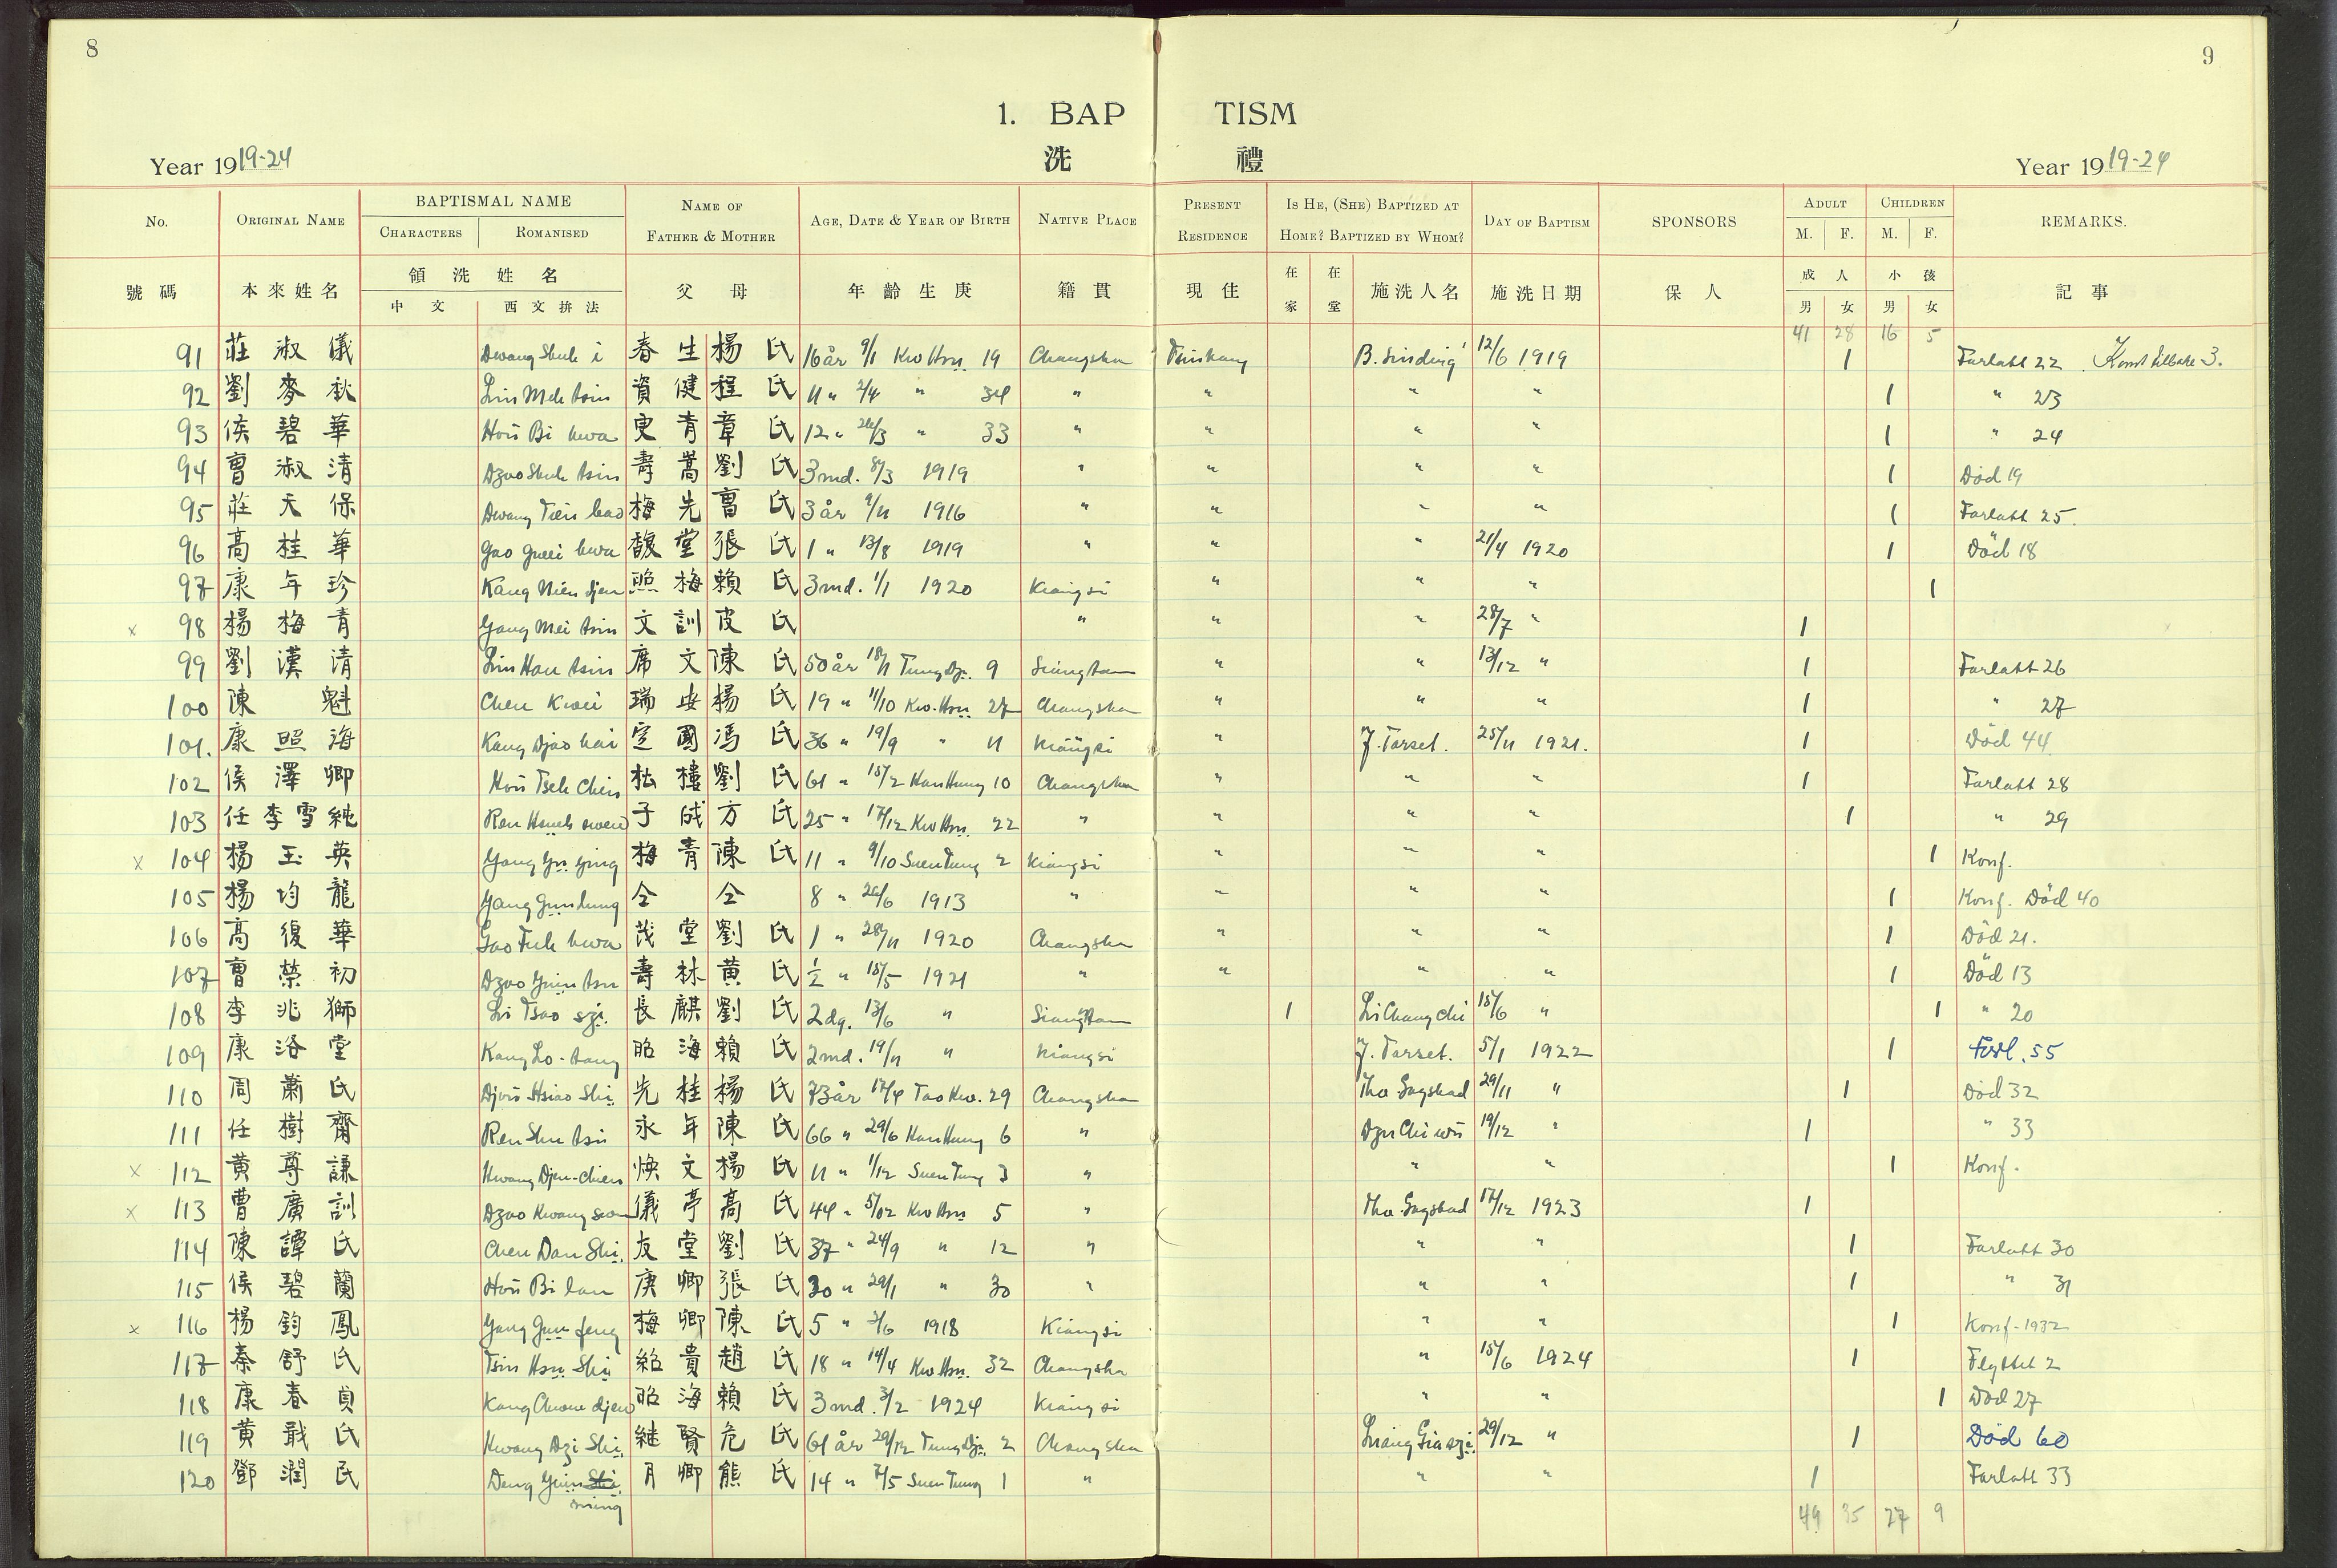 8
9
1. BAP TISM
洗 禮
Year 1919-24
Year 1919-24
No. ORIGINAL NAME BAPTISMAL NAME CHARACTERS ROMANISED NAME OF FATHER & MOTHER AGE, DATE & YEAR OF BIRTH NATIVE PLACE PRESENT RESIDENCE IS HE, (SHE) BAPTIZED AT HOME? BAPTIZED BY WHOM? DAY OF BAPTISM SPONSORS ADULT M. F. CHILDREN M. F. REMARKS.
號碼 本來姓名 領洗姓名 中文 西文拚法 父母 年齡生庚 籍貫 現住 在家 在堂 施洗人名 施洗日期 保人 成人 男 女 小孩 男 女 記事
41 28 16 5
91 莊淑儀 Dwang Shuh i 春生 楊氏 16 år 9/1 Kwo Hsu 19 Changsha Tsinkang B. Sinding 12/6 1919 1 Forlatt 22
92 劉麥秋 Liu Meh tsiu 資健 程氏 11 " 2/4 " 34 " " " " 1 " 23
93 侯碧華 Hou Bi hwa 吏青 章氏 12 " 26/3 " 33 " " " " 1 " 24
94 曹淑清 Dzao Shuh tsin 壽嵩 劉氏 3 md. 8/3 1919 " " " " 1 Död 19
95 莊天保 Dwang Tien bao 梅先 曹氏 3 år 9/11 1916 " " " " 1 Forlatt 25.
96 高桂華 Gao Gwei hwa 馥堂 張氏 1 " 13/8 1919 " " " 21/4 1920 1 Död 18
97 康年珍 Kang Nien djen 照梅 賴氏 3 md. 1/1 1920 Kiangsi " " " 1
x 98 楊梅青 Yang Mei tsin 文訓 皮氏 " " " 28/7 " 1
99 劉漢清 Liu Han tsin 席文 陳氏 50 år 18/11 Tung Dji. 9 Siangtan " " 13/12 " 1 Forlatt 26
100 陳魁 Chen Kwei 瑞安 楊氏 19 " 11/10 Kwo Hsu 27 Changsha " " " 1 " 27
101. 康照海 Kang Djao hai 定國 馮氏 36 " 19/9 " 11 Kiangsi " J. Torset. 25/11 1921. 1 Död 44
102 侯澤卿 Hou Tseh Chin 松樓 劉氏 61 " 15/2 Han Hung 10 Changsha " " " 1 Forlatt 28
103 任李雪純 Ren Hsueh swen 子成 方氏 25 " 17/12 Kwo Hsu. 22 " " " " 1 " 29
x 104 楊玉英 Yang Yu ying 梅青 陳氏 11 " 9/10 Suen Tung 2 Kiangsi " " " 1 Konf.
105 楊均龍 Yang Gun lung 仝 仝 8 " 26/6 1913 " " " " 1 Konf. Död 40
106 高復華 Gao Fuh hwa 茂堂 劉氏 1 " 28/11 1920 Changsha " " " 1 Död 21.
107 曹榮初 Dzao Yuin tsu 壽林 黄氏 1/2 " 15/5 1921 " " " " 1 Död 13
108 李兆獅 Li Tsao szi. 長麒 劉氏 2 dg. 13/6 " Siangtan 1 Li Chang chi 15/6 " 1 " 20
109 康洛堂 Kang Lo-tang 昭海 賴氏 2 md. 19/11 " Kiangsi J. Torset. 5/1 1922 1 Forl. 55
110 周蕭氏 Djou Hsiao Shi 先桂 楊氏 73 år 17/4 Tao Kw. 29 Changsha Tho Gogstad 29/11 " 1 Död 32
111 任樹齋 Ren Shu tsi 永年 陳氏 66 " 29/6 Han Hung 6 " Dzu Chi wu 19/12 " 1 " 33
x 112 黄尊謙 Hwang Djen-Chien 煥文 楊氏 11 " 1/12 Suen Tung 3 " " " 1 Konf.
x 113 曹廣訓 Dzao Kwang swen 儀亭 高氏 44 " 5/12 Kwo Hsu 5 " Tho. Gogstad 17/12 1923 1
114 陳譚氏 Chen Dan Shi. 友堂 劉氏 37 " 24/9 " 12 " " " 1 Forlatt 30
115 侯碧蘭 Hou Bi lan 庚卿 張氏 30 " 29/1 " 30 " " " 1 " 31
x 116 楊鈞鳳 Yang Gun feng 梅卿 陳氏 5 " 2/6 1918 Kiangsi " " 1 Konf-1932
117 秦舒氏 Tsin Hsu Shi 紹貴 趙氏 18 " 14/4 Kwo Hsu. 32 Changsha " 15/6 1924 1 Flyttet 2
118 康春貞 Kang Chwen djen 昭海 賴氏 3 md. 3/2 1924 Kiangsi " " 1 Död 27
119 黄戢氏 Hwang Dzi Shi. 継賢 危氏 61 år 29/12 Tung Dji 2 Changsha Liang Gia szi. 29/12 " 1 Död 60
120 鄧潤民 Deng Yuin Shi ming 月卿 熊氏 14 " 7/5 Suen Tung 1 " " " 1 Forlatt 33
49 35 27 9